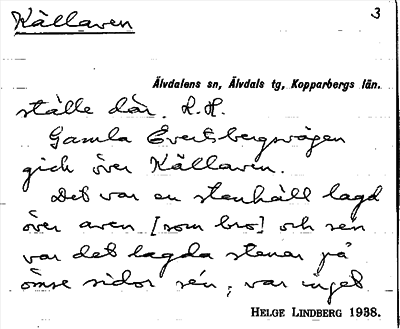 Källaven 3
Älvdalens sn, Älvdals tg, Kopparbergs län.
ställe där. R.H.
Gamla Evertsbergsvägen
gick över Källaven.
Det var en stenhäll lagd
över aven [som bro] och sen
var det lagda stenar på
ömse sidor sén, var inget
HELGE LINDBERG 1938.